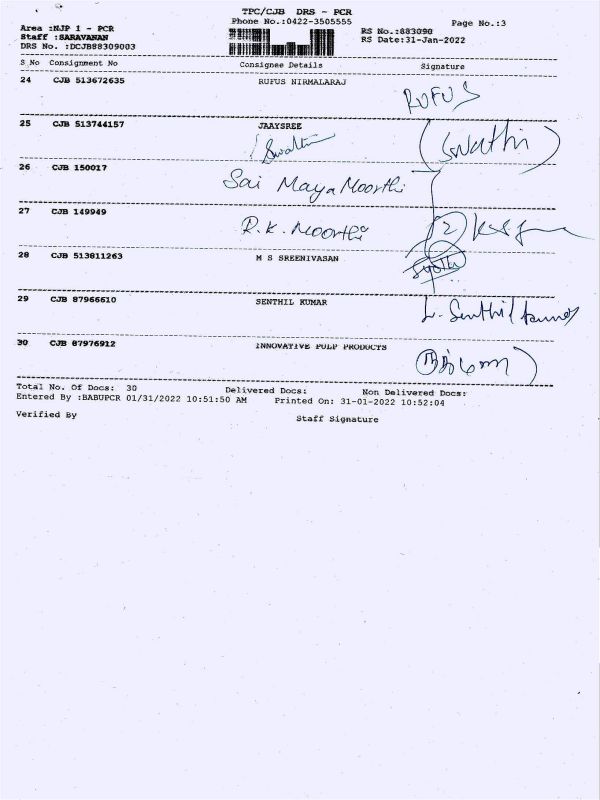 TPC/CJB DRS - PCR
Phone No.:0422-3505555
Page No.:3
Area :NJP 1 - PCR
RS No.:883090
Staff :SARAVANAN
RS Date:31-Jan-2022
DRS No. :DCJB88309003
S No Consignment No Consignee Details Signature
24 CJB 513672635 RUFUS NIRMALARAJ RUFUS
25 CJB 513744157 JAAYSREE
Swathi (Swathi)
26 CJB 150017 Sai Maya Moorthi
27 CJB 149949 R.K. Moorthi
28 CJB 513811263 M S SREENIVASAN
29 CJB 87966610 SENTHIL KUMAR L. Senthil Kumar
30 CJB 87976912 INNOVATIVE PULP PRODUCTS
Total No. Of Docs: 30 Delivered Docs: Non Delivered Docs:
Entered By :BABUPCR 01/31/2022 10:51:50 AM Printed On: 31-01-2022 10:52:04
Verified By Staff Signature